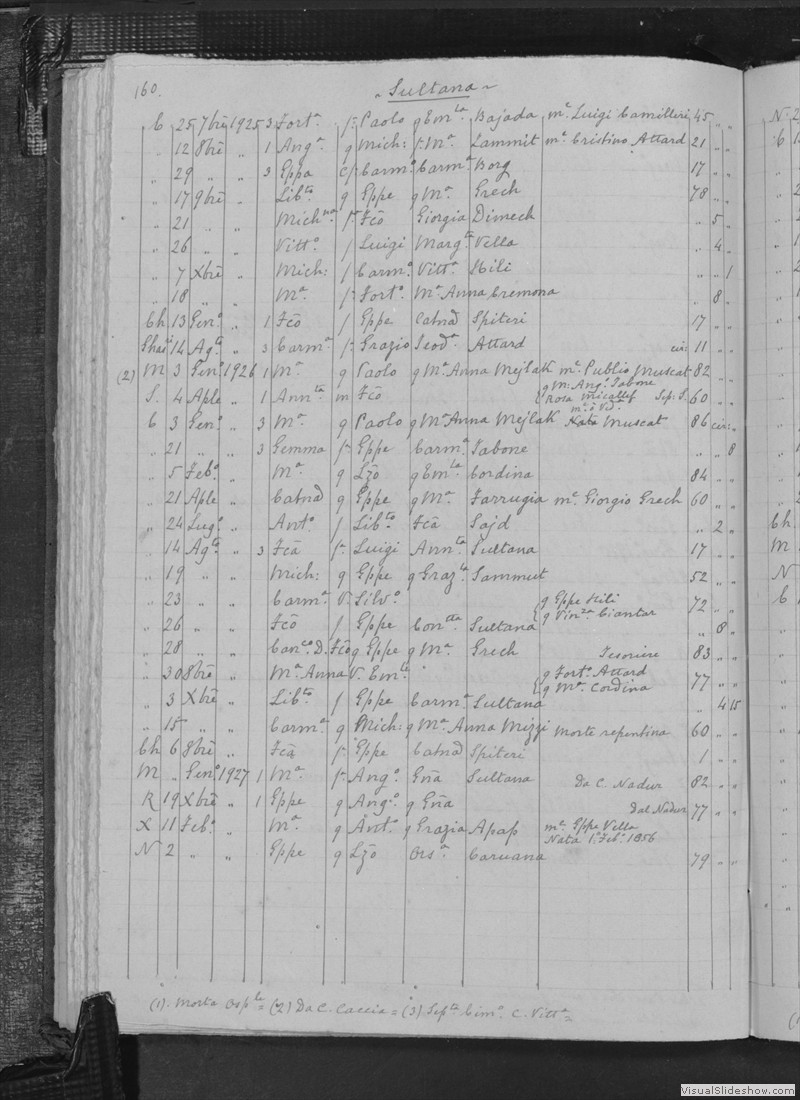 160.
„ Sultana „
C 25 7bre 1925 3 Forta f. Paolo g Emla Bajada me Luigi Camilleri 45 „ „
„ 12 8bre „ 1 Anga g Mich: f. Ma Zammit me Cristino Attard 21 „ „
„ 29 „ „ 3 Eppa cf. Carmo Carma Borg 17 „ „
„ 17 9bre „ Libto g Eppe g Ma Grech 78 „ „
„ 21 „ „ Michna f. Fco Giorgia Dimech „ 5 „
„ 26 „ Vitto f Luigi Margta Vella „ 4 „
„ 7 Xbre „ Mich: f Carmo Vitta Hili „ „ 1
„ 18 „ „ Ma f. Forto Ma Anna Cremona „ 8 „
Gh 13 Geno „ 1 Fco f Eppe Catna Spiteri 17 „ „
Ghas 14 Agto „ 3 Carma f. Grazio Teoda Attard cir: 11 „ „
(2) M 3 Geno 1926 1 Ma g Paolo g Ma Anna Mejlak me Publio Muscat 82 „ „
S. 4 Aple „ 1 Annta m Fco { g M: Anga Tabone
Rosa Micallef Sep: S. 60 „ „
C 3 Geno „ 3 Ma g Paolo g Ma Anna Mejlak Nata Muscat 86 cir: „
„ 21 „ „ 3 Gemma f. Eppe Carma Tabone „ „ 8
„ 5 Febo „ Ma g Lzo g Emla Cordina 84 „ „
„ 21 Aple „ Catna g Eppe g Ma Farrugia me Giorgio Grech 60 „ „
„ 24 Lugo „ Anto f Libto Fca Sajd „ 2 „
„ 14 Agto „ 3 Fca f. Luigi Annta Sultana 17 „ „
„ 19 „ „ Mich: g Eppe g Grazla Sammut 52 „ „
„ 23 „ „ Carma V. Silvo { g Eppe Hili
g Vinza Ciantar 72 „ „
„ 26 „ „ Fco f Eppe Contta Sultana „ 8 „
„ 28 „ „ Canco D. Fco g Eppe g Ma Grech Tesoriere 83 „ „
„ 30 8bre „ Ma Anna V. Emle { g Forto Attard
g Ma Cordina 77 „ „
„ 3 Xbre „ Libto f Eppe Carma Sultana „ 4 15
„ 15 „ „ Carma g Mich: g Ma Anna Mizzi morte repentina 60 „ „
Gh 6 8bre „ Fca f. Eppe Catna Spiteri 1 „ „
M „ Geno 1927 1 Ma f. Ango Gna Sultana Da C. Nadur 82 „ „
K 19 Xbre „ 1 Eppe g Ango g Gna Dal Nadur 77 „ „
X 11 Febo „ Ma g Anto g Grazia Apap me Eppe Vella
Nata 1o Febo 1856
N 2 „ „ Eppe g Lzo Orsa Caruana 79 „ „
(1). Morta Osple = (2) Da C. Caccia = (3) Septa Cimo C. Vitta =
VisualSlideshow.com